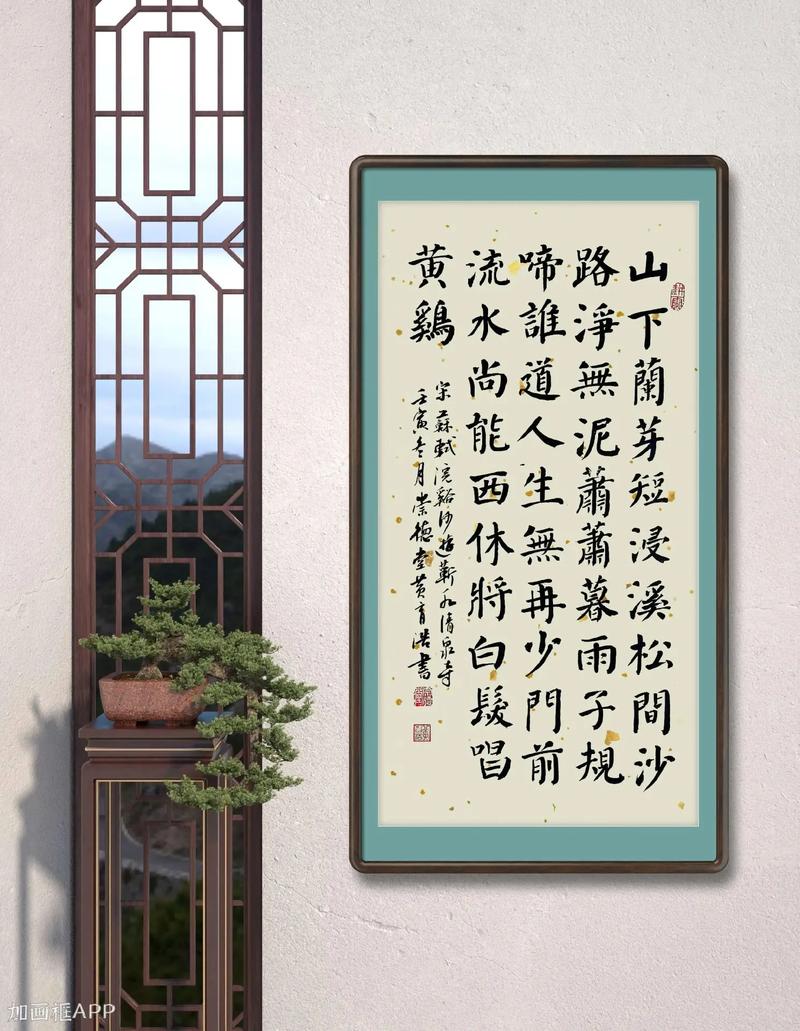 山下蘭芽短浸溪松間沙
路淨無泥蕭蕭暮雨子規
啼誰道人生無再少門前
流水尚能西休將白髮唱
黄鷄
宋蘇軾浣谿沙遊蘄水清泉寺
壬寅冬月崇德堂黄育浩書
加画框APP